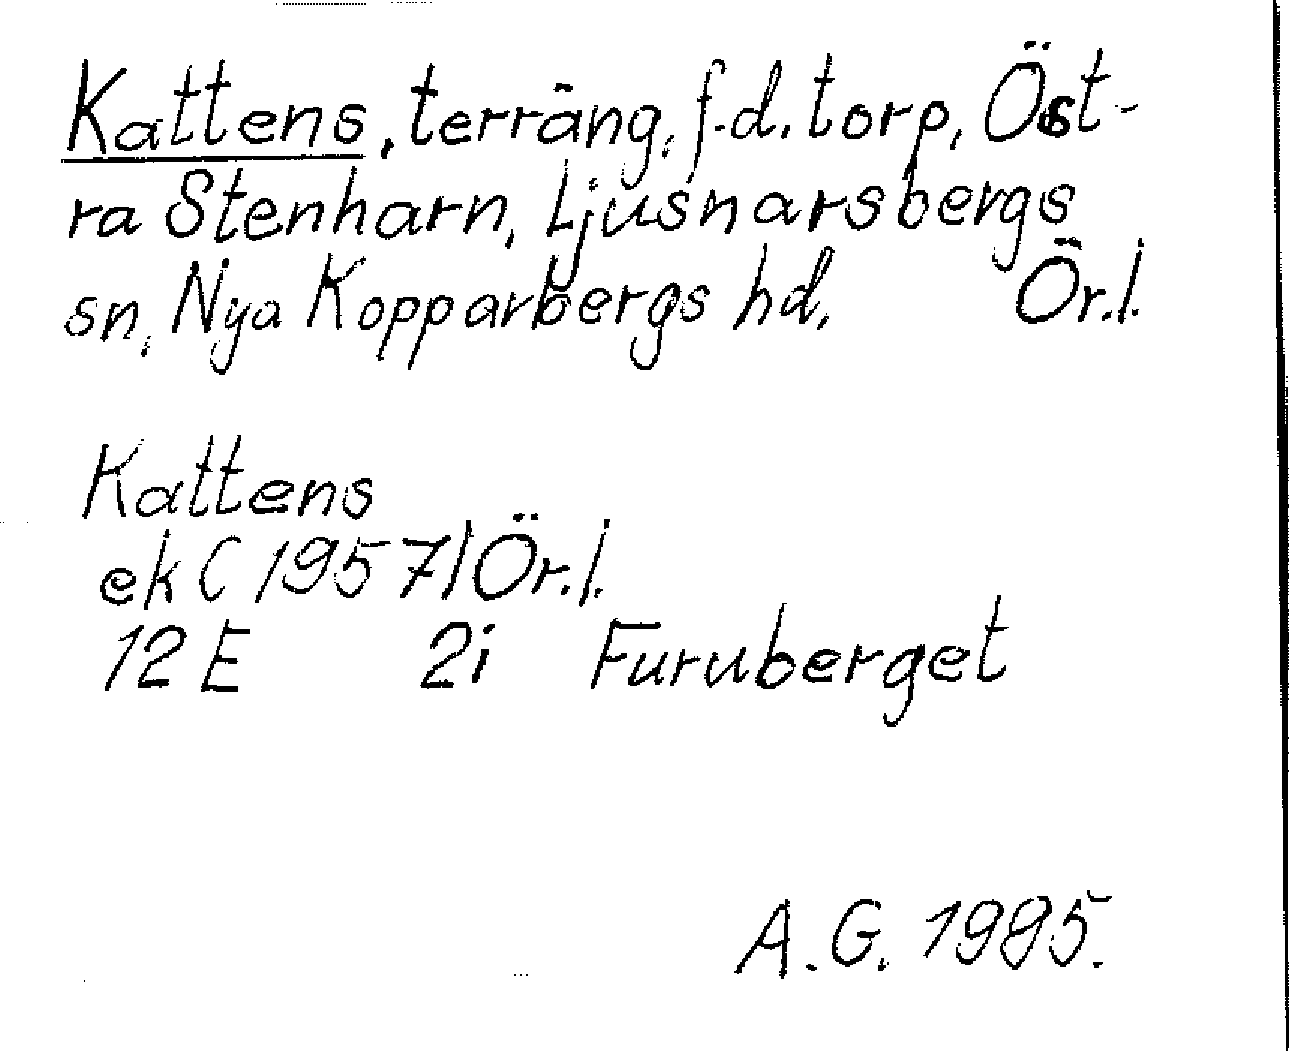 Kattens, terräng, f.d. torp, Öst-
ra Stenharn, Ljusnarsbergs
sn, Nya Kopparbergs hd, Ör.l.
Kattens
ek (1957) Ör.l.
12 E 2i Furuberget
A.G. 1995.